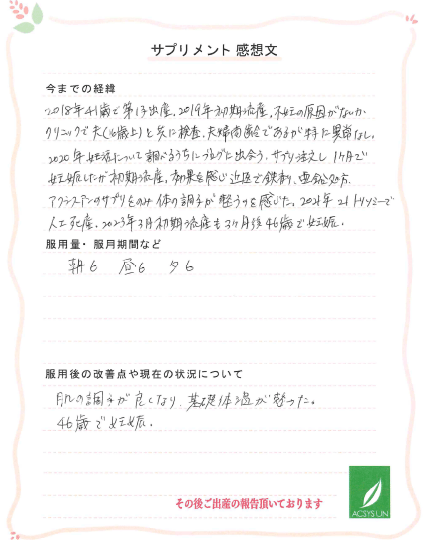 サプリメント 感想文
今までの経緯
2018年41歳で第1子出産。2019年初期流産。不妊の原因がないか
クリニックで夫(16歳上)と共に検査。夫婦高齢であるが特に異常なし。
2020年妊活について調べるうちにブログに出会う。サプリ注文し1ヶ月で
妊娠したが初期流産。効果を感じ近医で鉄剤、亜鉛処方、
アクシスアンのサプリをのみ体の調子が整うのを感じた。2021年21トリソミーで
人工死産。2023年3月初期流産も3ヶ月後46歳で妊娠。
服用量・服用期間など
朝6 昼6 夕6
服用後の改善点や現在の状況について
肌の調子が良くなり、基礎体温が整った。
46歳で妊娠。
その後ご出産の報告頂いております
ACSYS UN